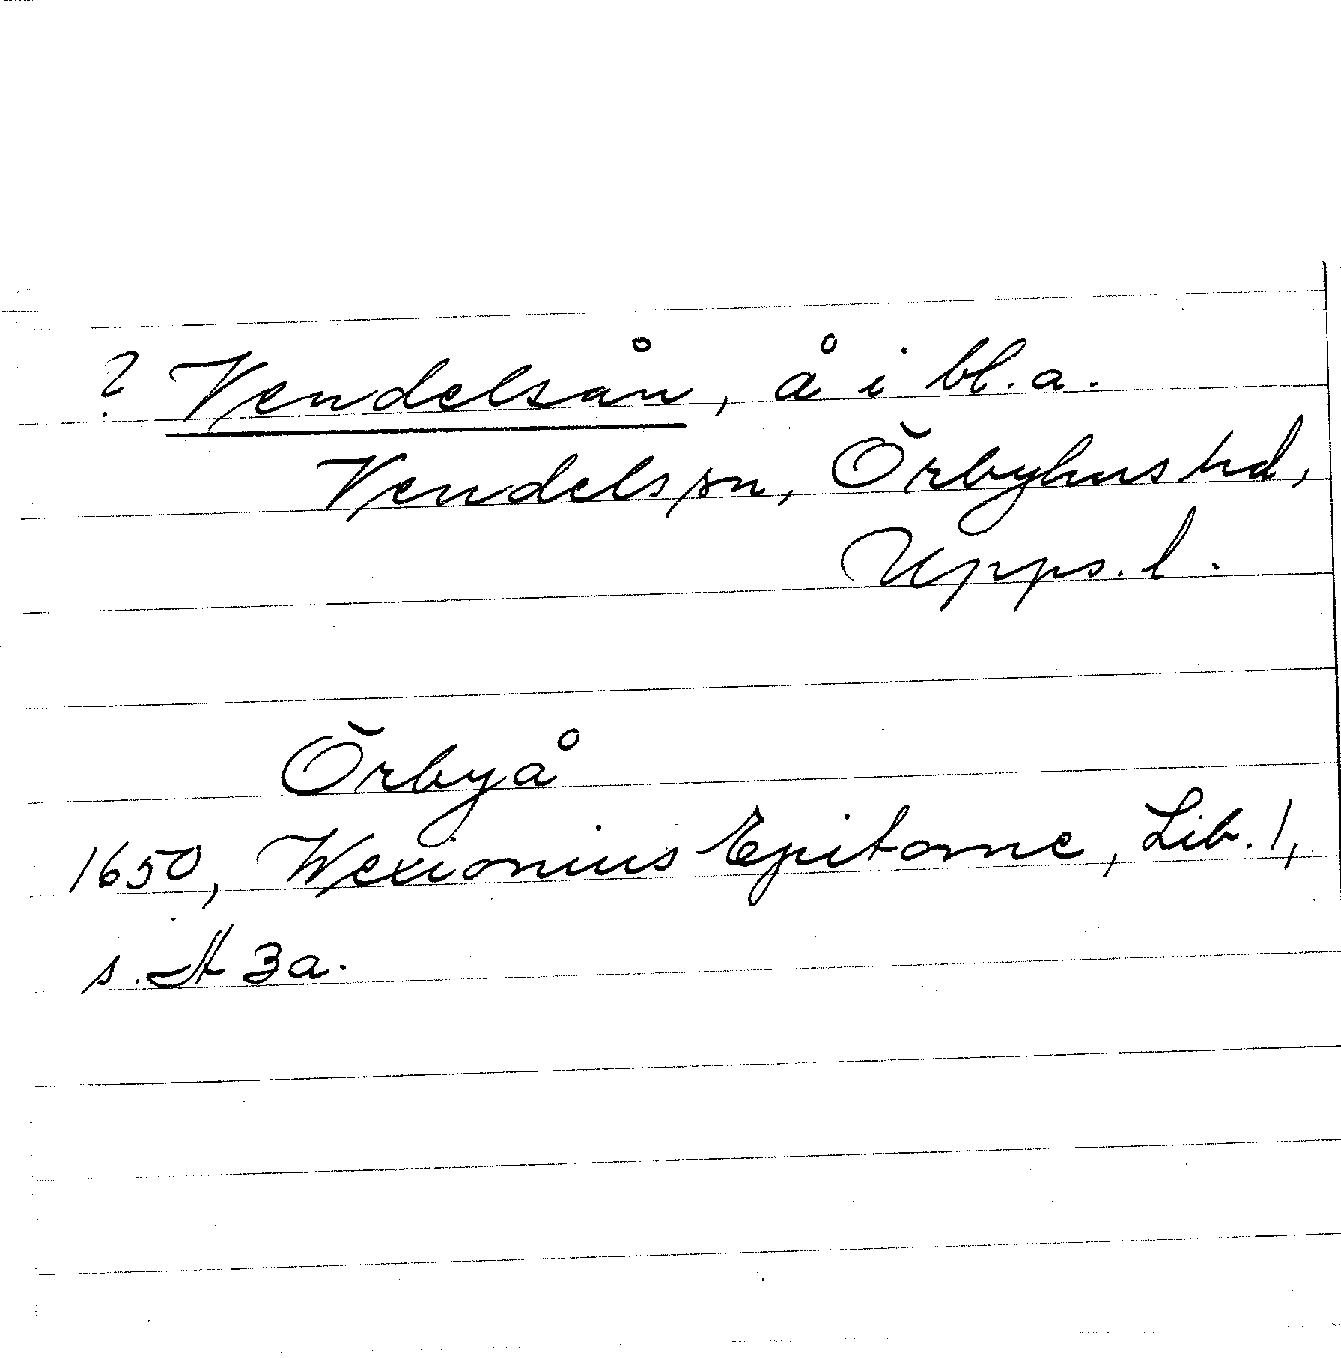 ? Vendelsån, å i bl. a.
Vendels sn, Örbyhus hd,
Upps. l.
Örbyå
1650, Wexionius Epitome, Lib. 1,
s. A 3a.